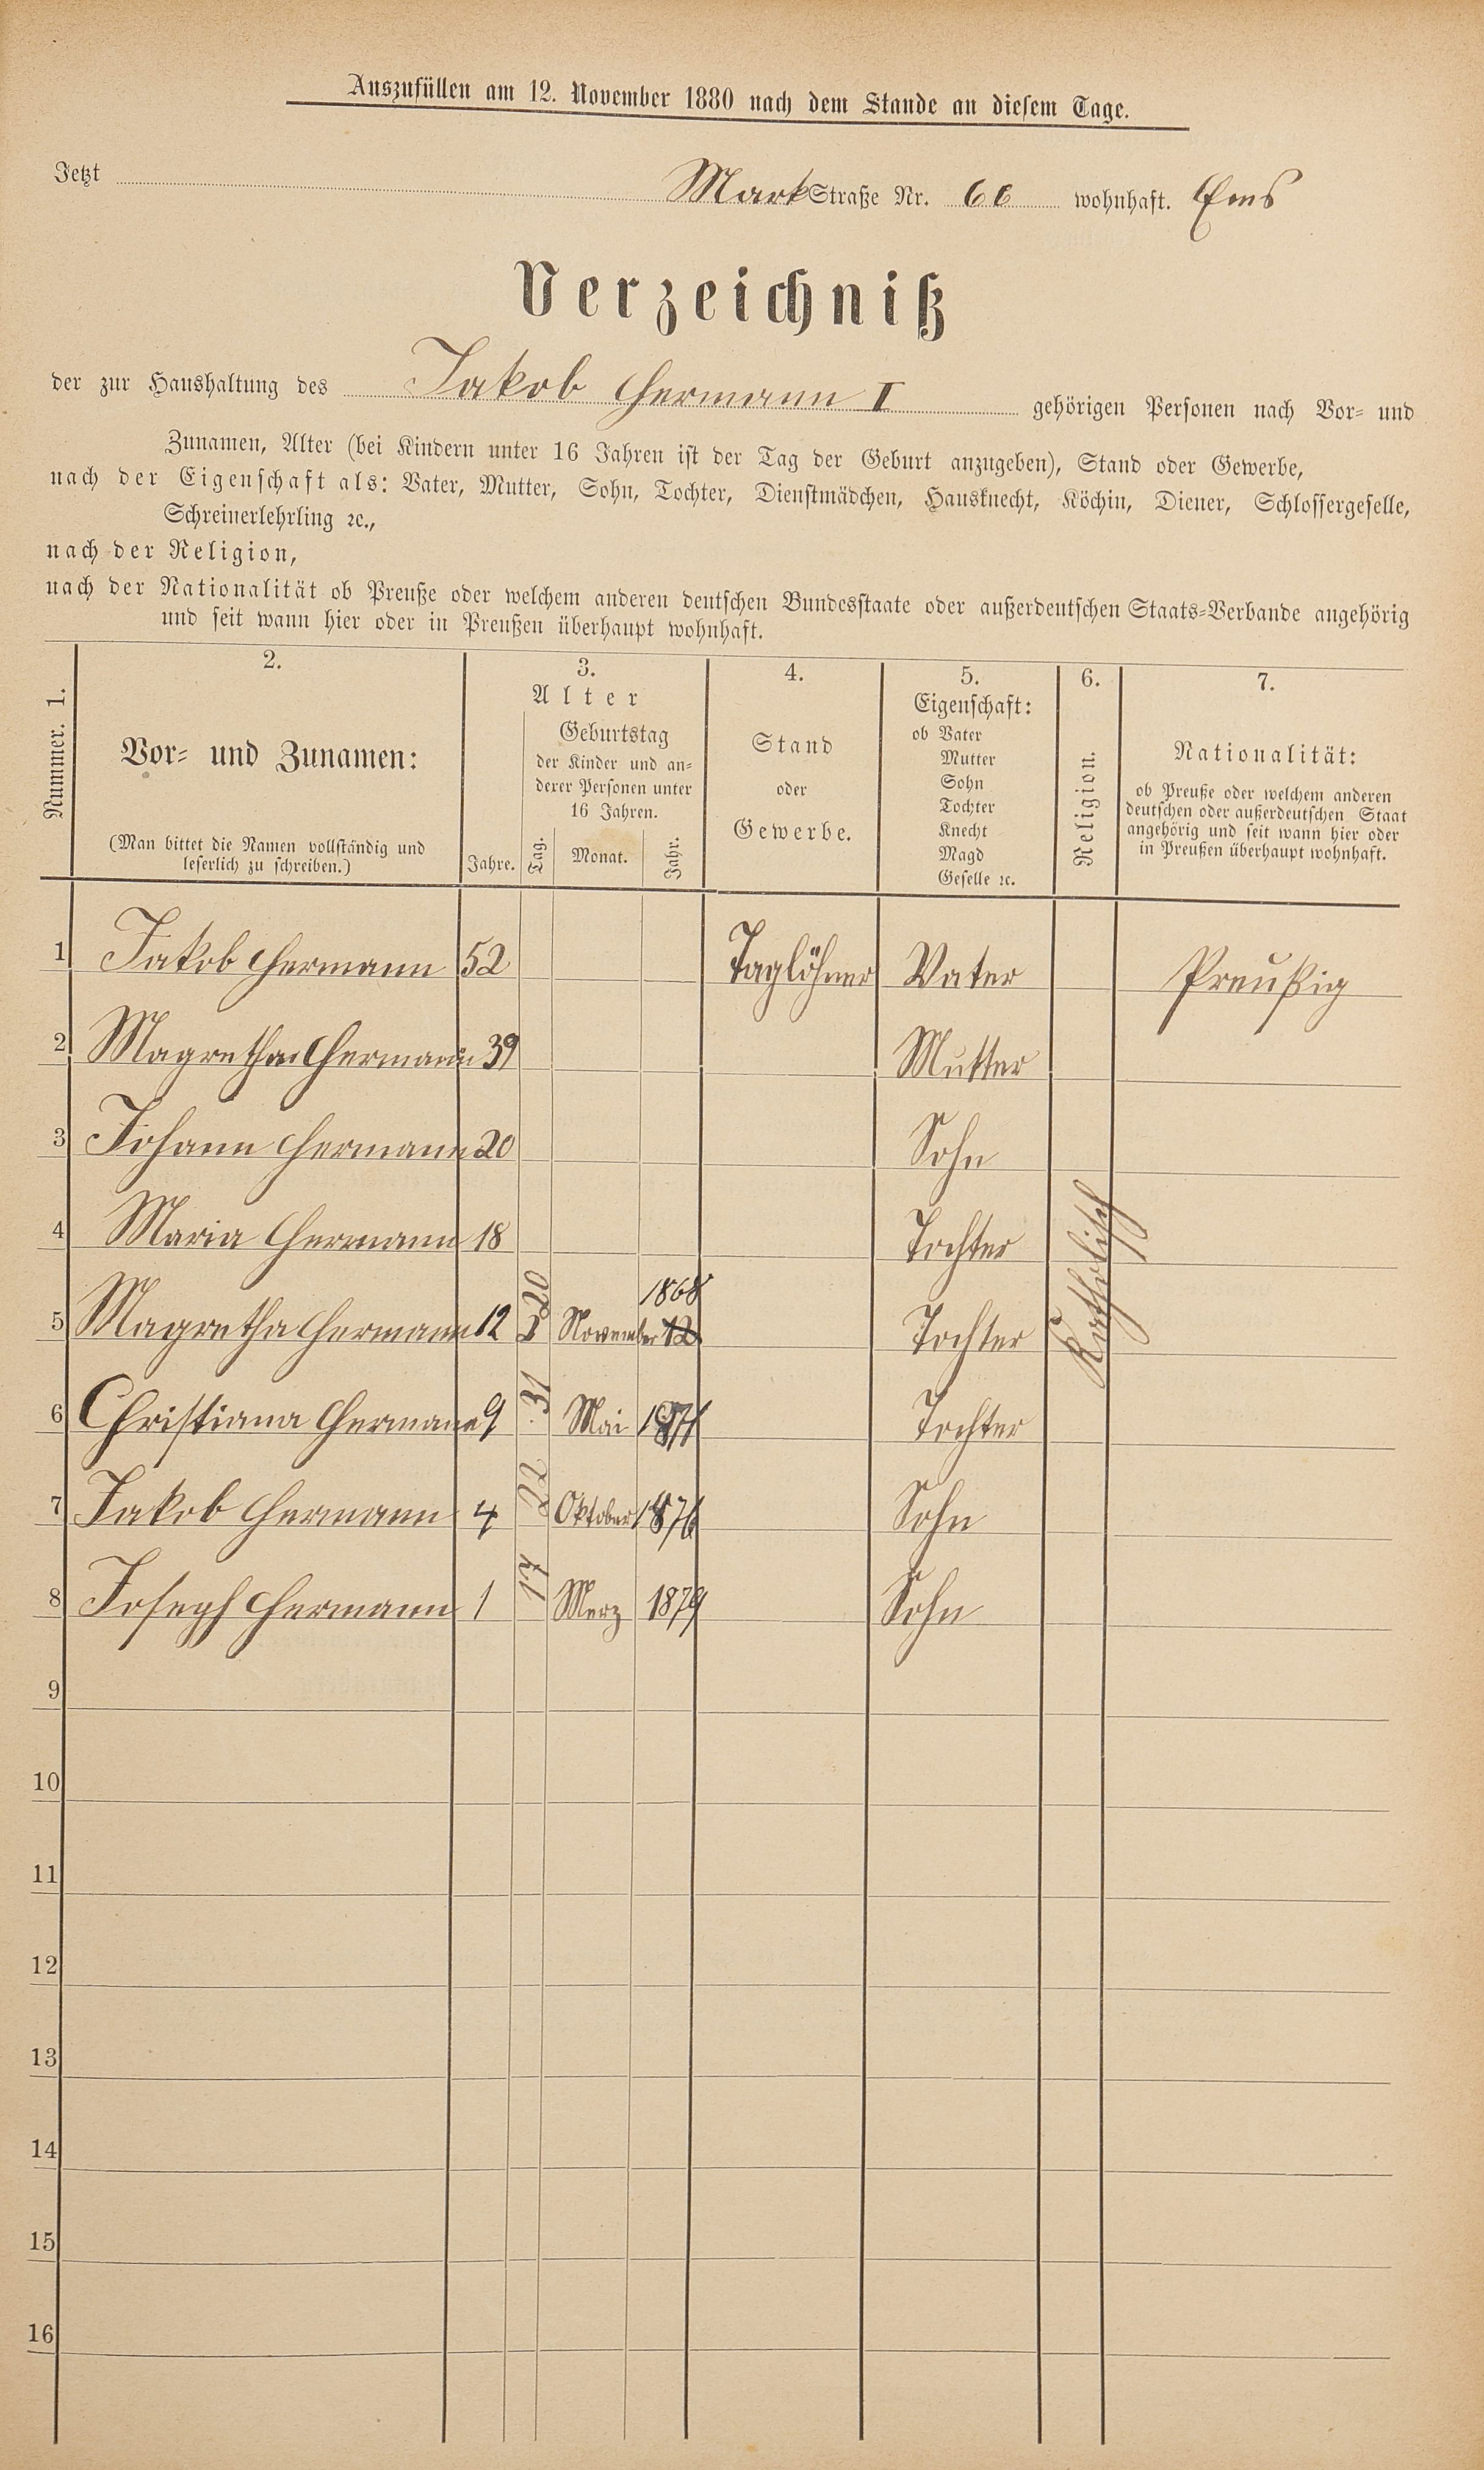 Auszufüllen am 12. November 1880 nach dem Stande an diesem Tage.
Jetzt Mark Straße Nr. 66 wohnhaft. Ems
Verzeichniß
der zur Haushaltung des Jakob Hermann I gehörigen Personen nach Vor- und
Zunamen, Alter (bei Kindern unter 16 Jahren ist der Tag der Geburt anzugeben), Stand oder Gewerbe,
nach der Eigenschaft als: Vater, Mutter, Sohn, Tochter, Dienstmädchen, Hausknecht, Köchin, Diener, Schlossergeselle,
Schreinerlehrling ꝛc.,
nach der Religion,
nach der Nationalität ob Preuße oder welchem anderen deutschen Bundesstaate oder außerdeutschen Staats-Verbande angehörig
und seit wann hier oder in Preußen überhaupt wohnhaft.
Nummer. 1.
2.
Vor- und Zunamen:
(Man bittet die Namen vollständig und
leserlich zu schreiben.)
3.
Alter
Jahre.
Geburtstag
der Kinder und an-
derer Personen unter
16 Jahren.
Tag. Monat. Jahr.
4.
Stand
oder
Gewerbe.
5.
Eigenschaft:
ob Vater
Mutter
Sohn
Tochter
Knecht
Magd
Geselle ꝛc.
6.
Religion.
7.
Nationalität:
ob Preuße oder welchem anderen
deutschen oder außerdeutschen Staat
angehörig und seit wann hier oder
in Preußen überhaupt wohnhaft.
1 Jakob Hermann 52 Taglöhner Vater Preußig
2 Magretha Hermann 39 Mutter
3 Johann Hermann 20 Sohn
4 Maria Hermann 18 Tochter
Katholisch
5 Magretha Hermann 12 20 November 1868 12 Tochter
6 Christiana Hermann 9 31 Mai 1871 Tochter
7 Jakob Hermann 4 22 Oktober 1876 Sohn
8 Joseph Hermann 1 17 Merz 1879 Sohn
9
10
11
12
13
14
15
16